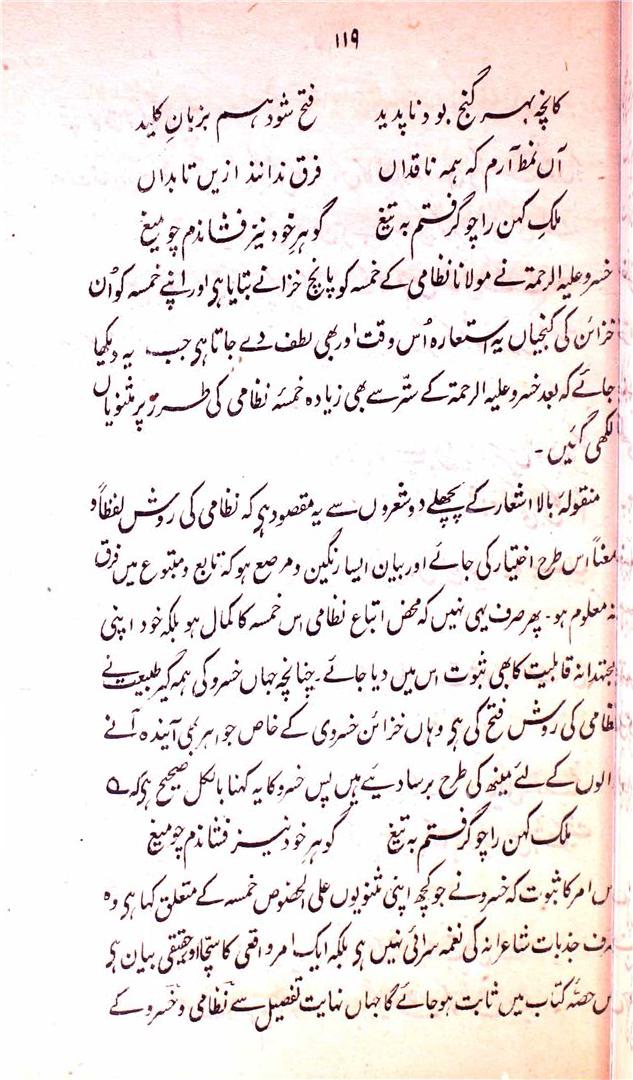 ۱۱۹
کانچہ بہر گنج بود ناپدید فتح شود ہم بزبانِ کلید
آں نمط آرم کہ ہمہ ناقداں فرق ندانند ازیں تابداں
ملکِ کہن را چو گرفتم بہ تیغ گوہرِ خود نیز فشاندم چو میغ
خسرو علیہ الرحمۃ نے مولانا نظامی کے خمسہ کو پانچ خزانے بتایا ہی اور اپنے خمسہ کو اُن
خزائن کی کنجیاں یہ استعارہ اُس وقت اور بھی لطف دے جاتا ہی جب یہ دیکھا
جائے کہ بعد خسرو علیہ الرحمۃ کے ستّر سے بھی زیادہ خمسۂ نظامی کی طرز پر مثنویاں
لکھی گئیں۔
منقولۂ بالا اشعار کے پچھلے دو شعروں سے یہ مقصود ہی کہ نظامی کی روش لفظاً و
معناً اس طرح اختیار کی جائے اور بیان ایسا رنگین و مرصع ہو کہ تابع و متبوع میں فرق
نہ معلوم ہو۔ پھر صرف یہی نہیں کہ محض اتباع نظامی اس خمسہ کا کمال ہو بلکہ خود اپنی
مجتہدانہ قابلیت کا بھی ثبوت اس میں دیا جائے۔ چنانچہ جہاں خسرو کی ہمہ گیر طبیعت نے
نظامی کی روش فتح کی ہی وہاں خزائن خسروی کے خاص جواہر بھی آیندہ آنے
والوں کے لئے مینھ کی طرح برسا دیئے ہیں پس خسرو کا یہ کہنا بالکل صحیح ہی کہ ؎
ملک کہن را چو گرفتم بہ تیغ گوہر خود نیز فشاندم چو میغ
اس امر کا ثبوت کہ خسرو نے جو کچھ اپنی مثنویوں علی الخصوص خمسہ کے متعلق کہا ہی وہ
صرف جذبات شاعرانہ کی نغمہ سرائی نہیں ہی بلکہ ایک امر واقعی کا سچا اور حقیقی بیان ہی
اس حصۂ کتاب میں ثابت ہو جائے گا جہاں نہایت تفصیل سے نظامی و خسرو کے